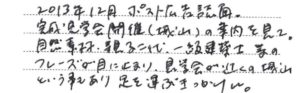 2013年12月 ポスト広告誌面。
完成見学会開催(城山)の案内を見て。
自然素材、親子二代、一級建築士 等の
フレーズが目に止まり、見学会が近くの城山
という事もあり 足を運ぶきっかけに。